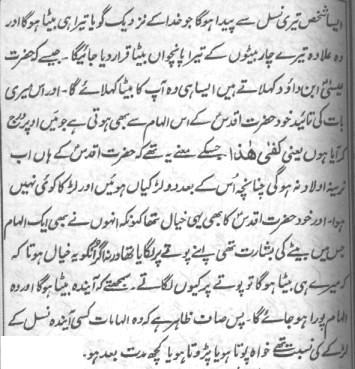 ایسا شخص تیری نسل سے پیدا ہوگا جو خدا کے نزدیک گویا تیرا ہی بیٹا ہوگا اور
وہ علاوہ تیرے چار بیٹوں کے تیرا پانچواں بیٹا قرار دیا جائیگا۔ جیسے کہ حضرت
عیسیٰؑ ابن داؤد کہلاتے ہیں ایسا ہی وہ آپ کا بیٹا کہلائے گا۔ اور اس میری
بات کی تائید خود حضرت اقدسؑ کے اس الہام سے بھی ہوتی ہے جو میں اوپر درج
کر آیا ہوں یعنی کفٰی ھٰذا جسکے معنے یہ تھے کہ حضرت اقدسؑ کے ہاں اب
نرینہ اولاد نہ ہوگی چنانچہ اُس کے بعد دو لڑکیاں ہوئیں اور لڑکا کوئی نہیں
ہوا۔ اور خود حضرت اقدسؑ کا بھی یہی خیال تھا کیونکہ انہوں نے بھی ایک الہام
جس میں بیٹے کی بشارت تھی اپنے پوتے پر لگایا تھا ورنہ اگر آنکو یہ خیال ہوتا کہ
کہ میرے ہی بیٹا ہوگا تو پوتے پر کیوں لگاتے۔ سمجھتے کہ آیندہ بیٹا ہوگا اور وہ
الہام پورا ہو جائے گا۔ پس صاف ظاہر ہے کہ وہ الہامات کسی آیندہ نسل کے
لڑکے کی نسبت تھے خواہ پوتا ہو یا پڑوتا ہو یا کچھ مدت بعد ہو۔